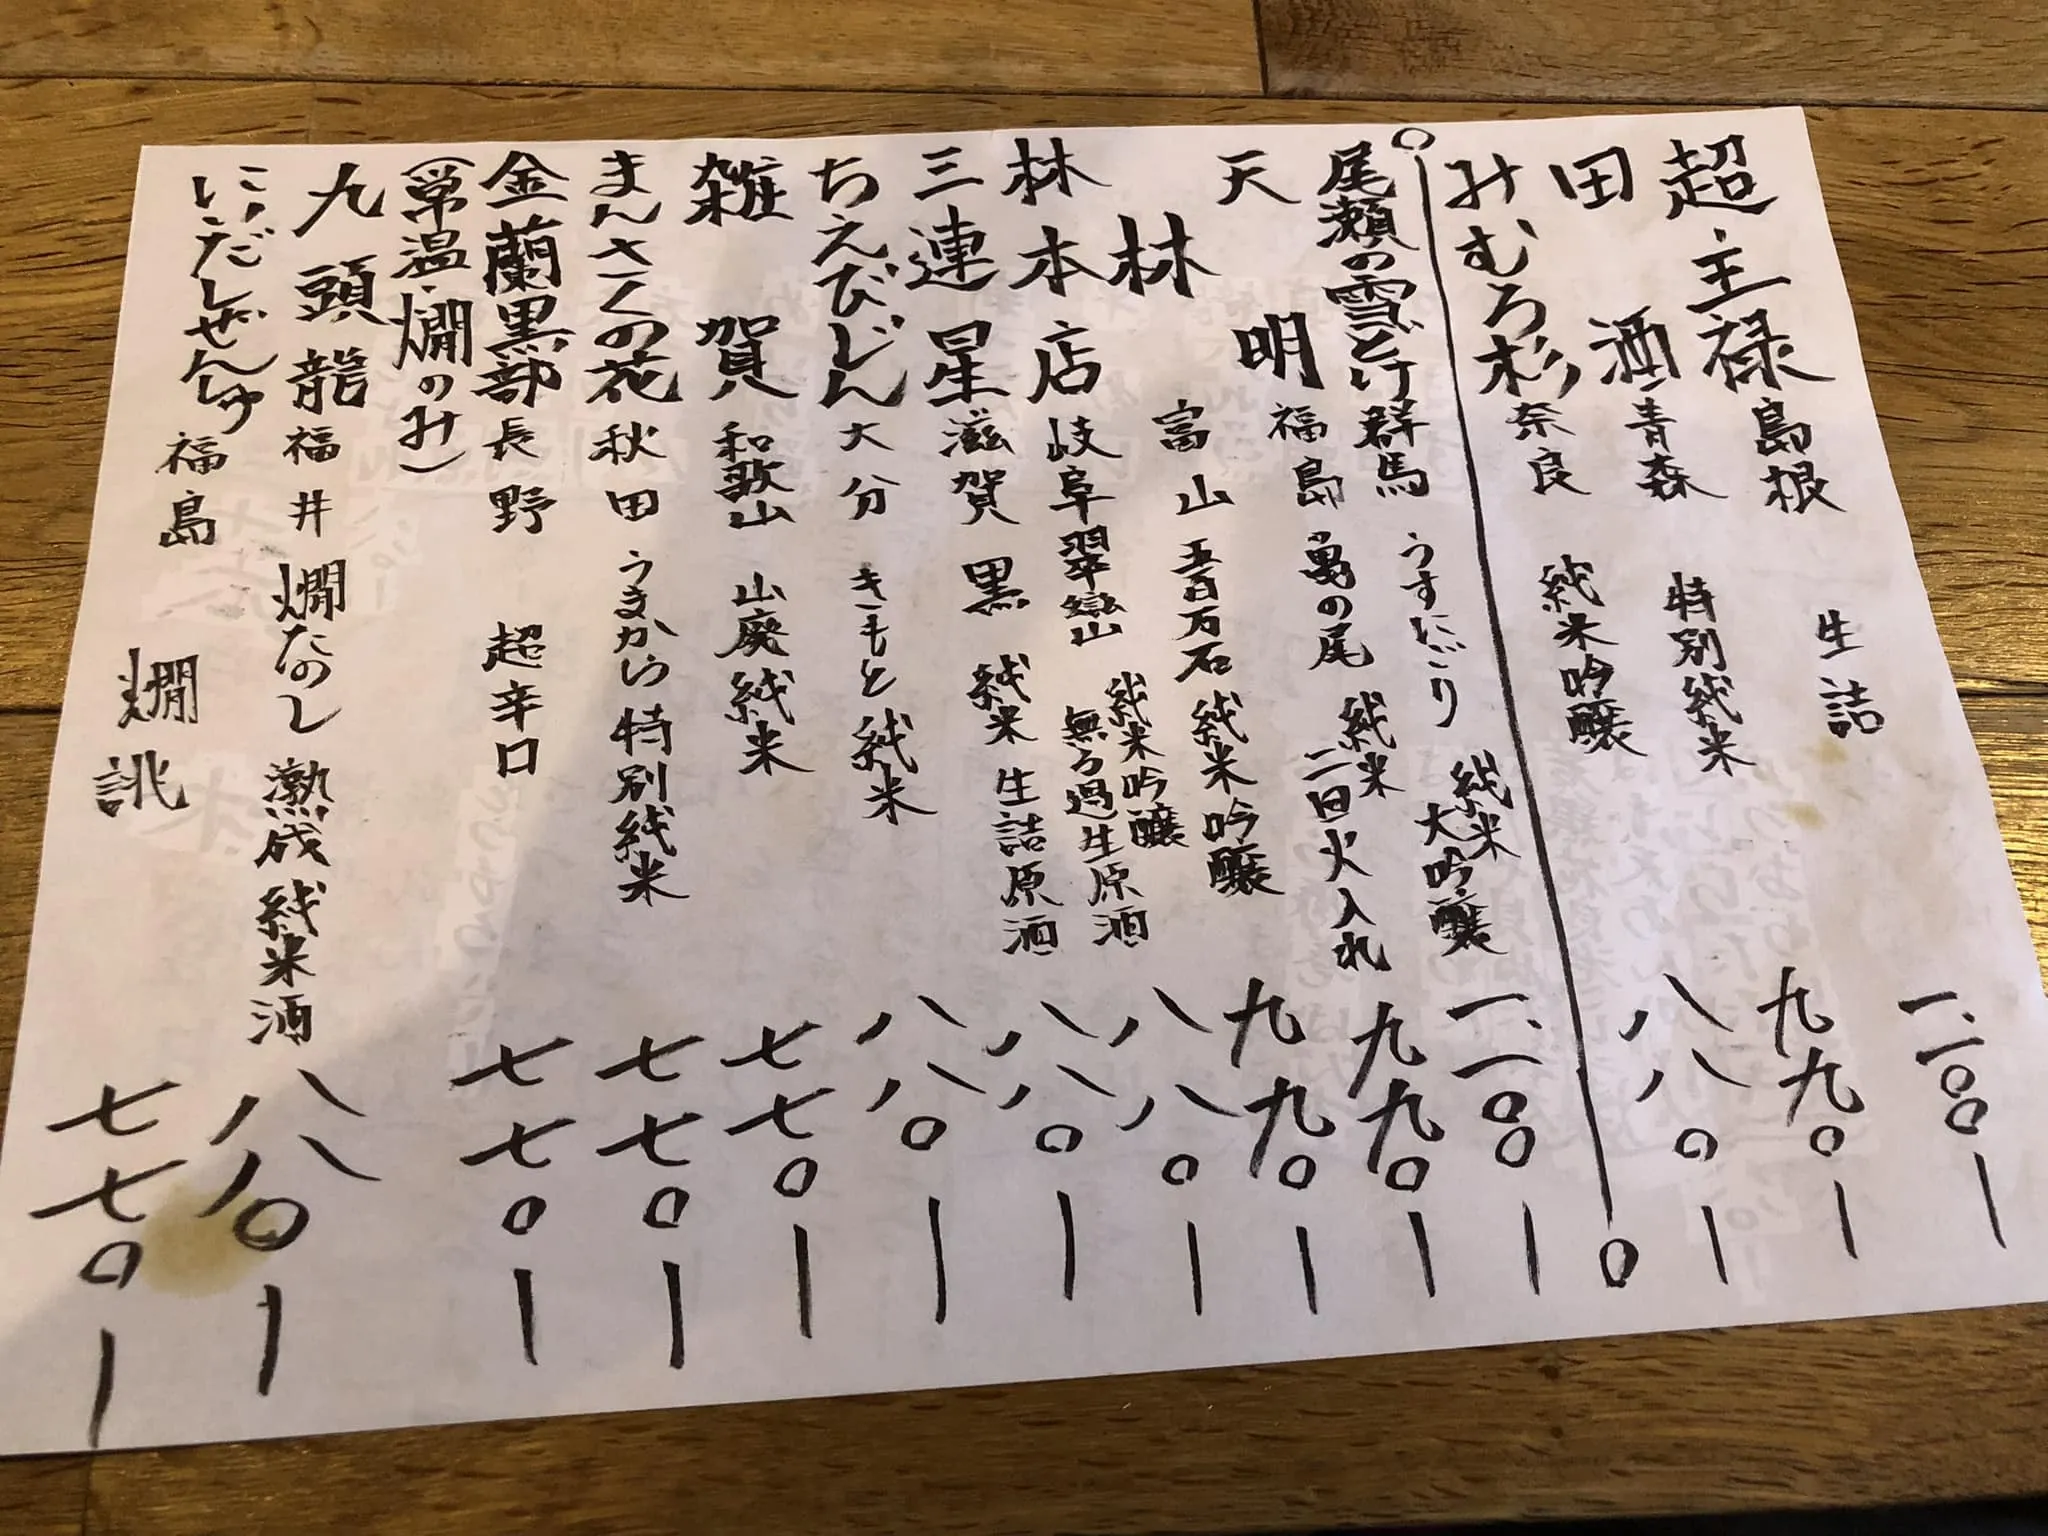 超王禄 島根 生詰 一、一〇〇ー
田酒 青森 特別純米 九九〇ー
みむろ杉 奈良 純米吟醸 八八〇ー
尾瀬の雪どけ 群馬 うすにごり 純米大吟醸 一、一〇〇ー
天明 福島 亀の尾 純米 二回火入れ 九九〇ー
林 富山 五百万石 純米吟醸 九九〇ー
林本店 岐阜 翠巒山 純米吟醸 無ろ過生原酒 八八〇ー
三連星 滋賀 黒 純米 生詰原酒 八八〇ー
ちえびじん 大分 きもと純米 八八〇ー
雑賀 和歌山 山廃純米 七七〇ー
まんさくの花 秋田 うまから 特別純米 七七〇ー
金蘭黒部 長野 超辛口 七七〇ー
(常温・燗のみ)
九頭龍 福井 燗たのし 熟成純米酒 八八〇ー
にいだしぜんしゅ 福島 燗誂 七七〇ー